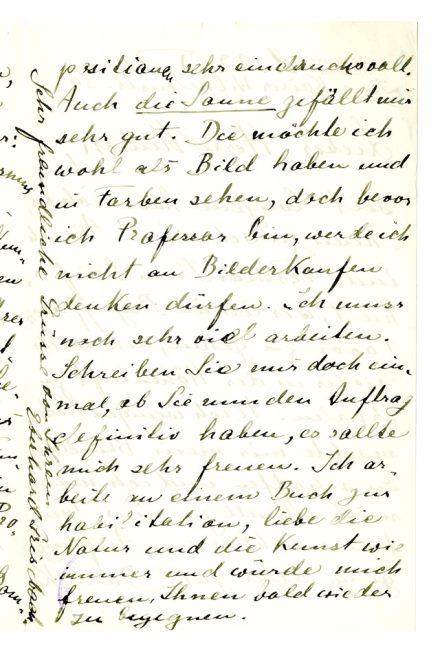 positionen sehr eindrucksvoll.
Auch die Sonne gefällt mir
sehr gut. Die möchte ich
wohl als Bild haben und
in Farben sehen, doch bevor
ich Professor bin, werde ich
nicht an Bilderkaufen
denken dürfen. Ich muss
noch sehr viel arbeiten.
Schreiben Sie mir doch ein-
mal, ob Sie nun den Auftrag
definitiv haben, es sollte
mich sehr freuen. Ich ar-
beite an einem Buch zur
habilitation, liebe die
Natur und die Kunst wie
immer und würde mich
freuen, Ihnen bald wieder
zu begegnen.
Sehr freundliche Grüsse von Ihrem
Eberhard